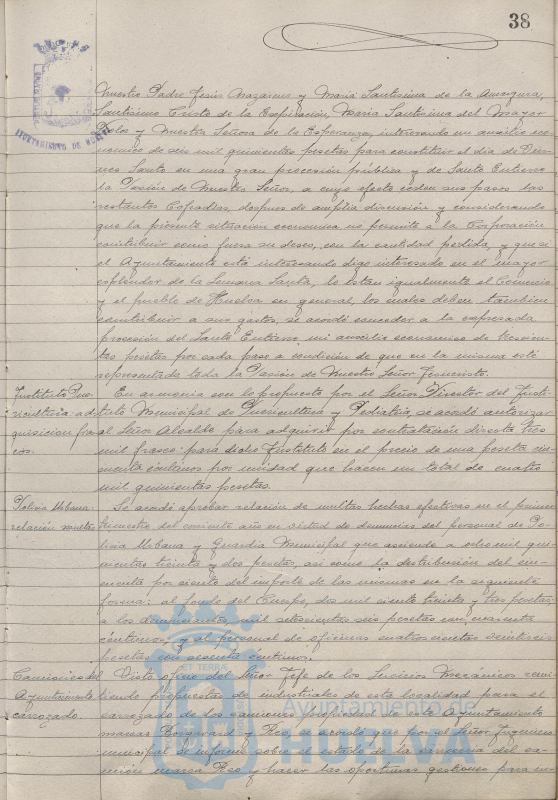 38
AYUNTAMIENTO DE HUELVA
Nuestro Padre Jesús Nazareno y María Santísima de la Amargura,
Santísimo Cristo de la Expiración, María Santísima del Mayor
Dolor y Nuestra Señora de la Esperanza, interesando un auxilio eco-
nómico de seis mil quinientas pesetas para constituir el día de Vier-
nes Santo en una gran procesión pública y de Santo Entierro
la Pasión de Nuestro Señor, a cuyo efecto ceden sus pasos las
restantes Cofradías, después de amplia discusión y considerando
que la presente situación económica no permite a la Corporación
contribuir como fuera su deseo, con la cantidad pedida, y que si
el Ayuntamiento está interesando digo interesado en el mayor
esplendor de la Semana Santa, lo están igualmente el Comercio
y el pueblo de Huelva en general, los cuales deben también
contribuir a sus gastos, se acordó conceder a la expresada
procesión del Santo Entierro un auxilio económico de trescien-
tas pesetas por cada paso a condición de que en la misma esté
representada toda la Pasión de Nuestro Señor Jesucristo.
Instituto Pue-
ricultura ad-
quisicion fras-
cos.
En armonía con lo propuesto por el Señor Director del Insti-
tuto Municipal de Puericultura y Pediatría, se acordó autorizar
al Señor Alcalde para adquirir por contratación directa tres
mil frascos para dicho Instituto en el precio de una peseta cin-
cuenta céntimos por unidad que hacen un total de cuatro
mil quinientas pesetas.
Policía Urbana
relación multas
Se acordó aprobar relación de multas hechas efectivas en el primer
trimestre del corriente año en virtud de denuncias del personal de Po-
licía Urbana y Guardia Municipal que asciende a ocho mil qui-
nientas treinta y dos pesetas, así como la distribución del cin-
cuenta por ciento del importe de las mismas en la siguiente
forma: al fondo del Cuerpo, dos mil ciento treinta y tres pesetas
a los denunciantes, mil setecientas seis pesetas con cuarenta
céntimos; y al personal de oficinas cuatrocientas veintiseis
pesetas con sesenta céntimos.
Camiones del
Ayuntamiento
carrozado
Visto oficio del Señor Jefe de los Servicios Mecánicos remi-
tiendo propuestas de industriales de esta localidad para el
carrozado de los camiones propiedad de este Ayuntamiento
marcas Borgward y Reo, se acordó que por el Señor Ingeniero
municipal se informe sobre el estado de la carrocería del ca-
mión marca Reo y hacer las oportunas gestiones para
Ayuntamiento de
HUELVA